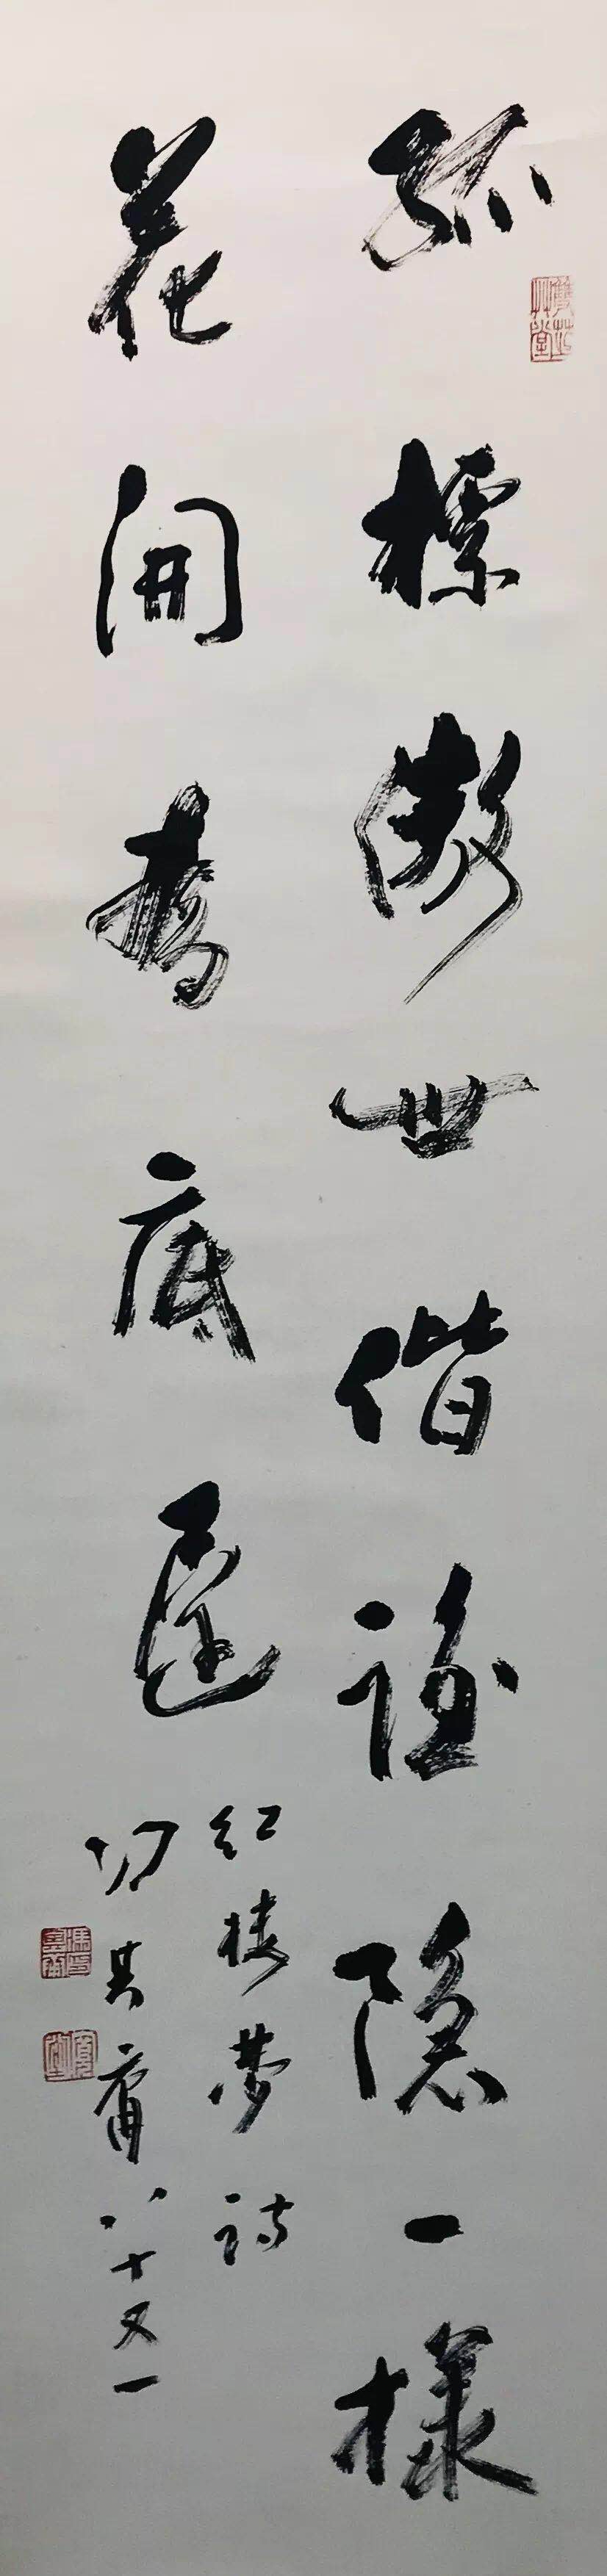 孤標傲世偕誰隱一樣
花開為底遲
紅樓夢詩
馮其庸八十又一
寬堂